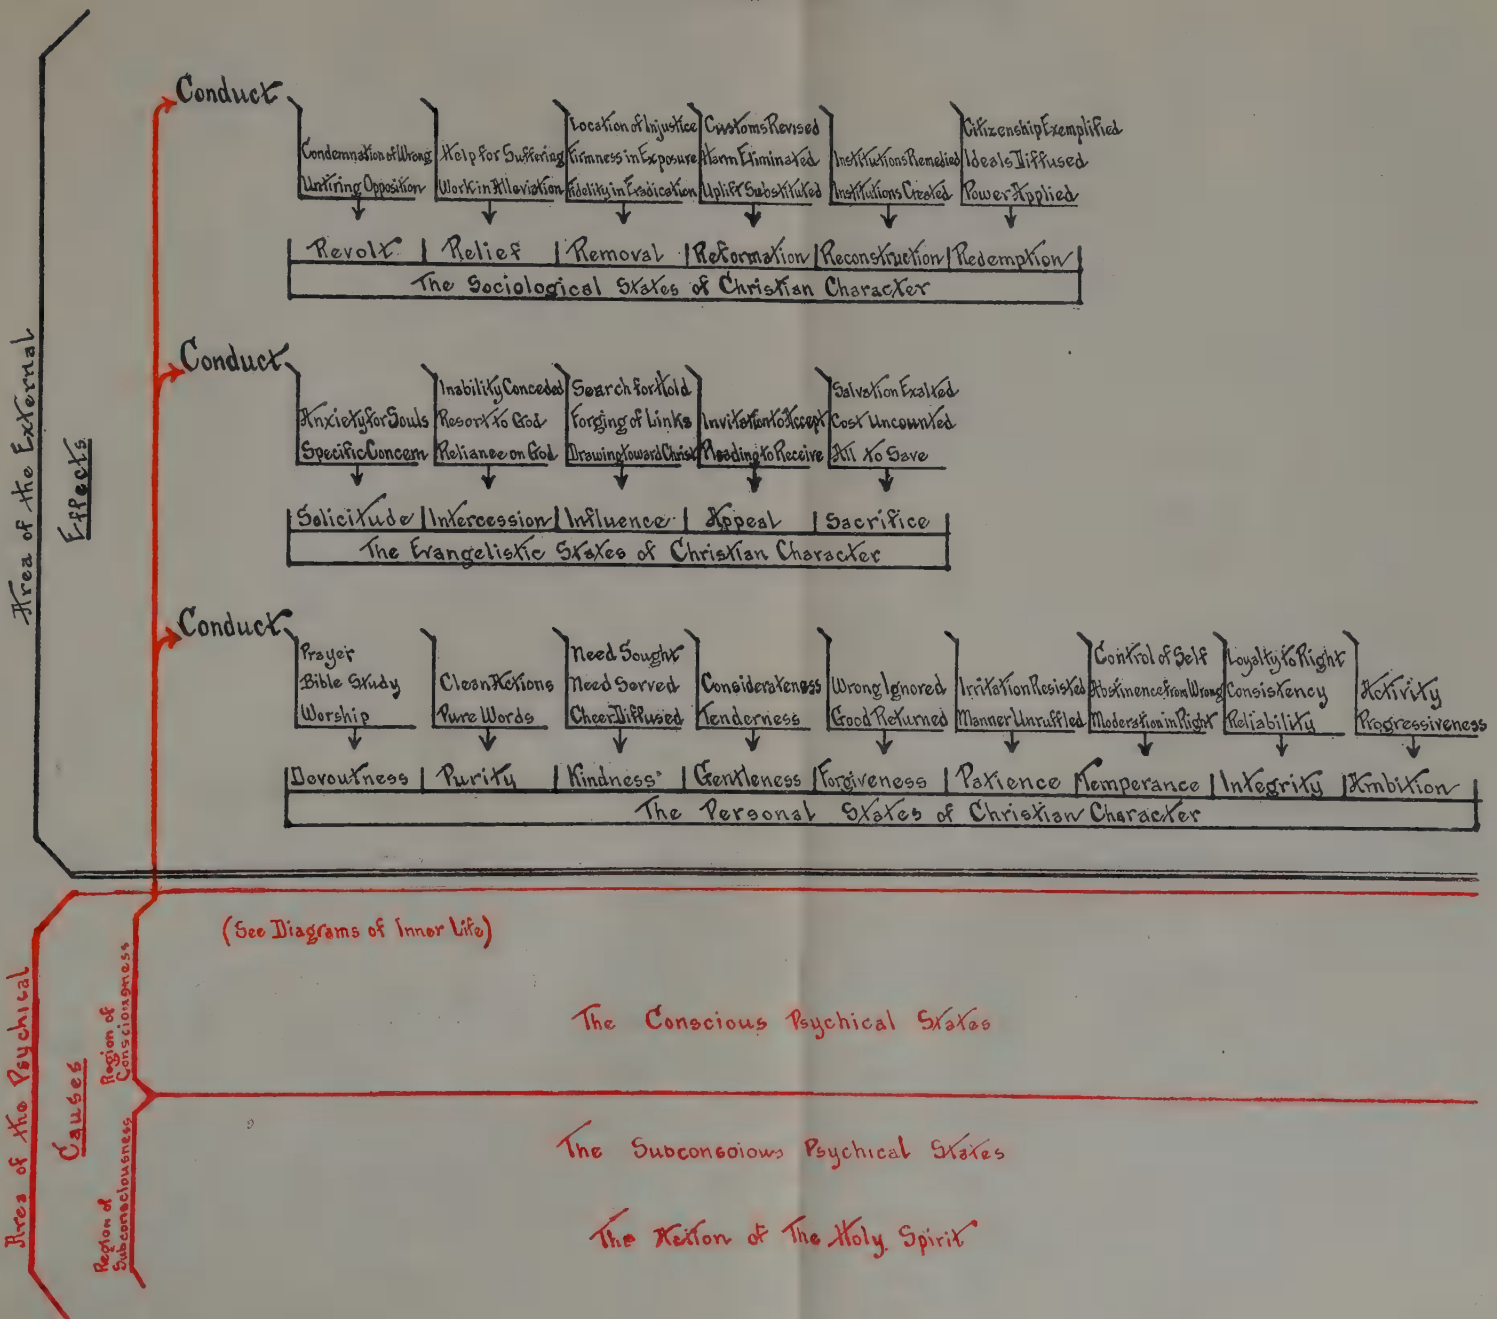 Area of the External
Effects
Conduct
Condemnation of Wrong
Untiring Opposition
Help for Suffering
Work in Alleviation
Location of Injustice
Firmness in Exposure
Fidelity in Eradication
Customs Revised
Harm Eliminated
Uplift Substituted
Institutions Remedied
Institutions Created
Citizenship Exemplified
Ideals Diffused
Power Applied
Revolt
Relief
Removal
Reformation
Reconstruction
Redemption
The Sociological States of Christian Character
Conduct
Anxiety for Souls
Specific Concern
Inability Conceded
Resort to God
Reliance on God
Search for Hold
Forging of Links
Drawing toward Christ
Invitation to Accept
Pleading to Receive
Salvation Exalted
Cost Uncounted
All to Save
Solicitude
Intercession
Influence
Appeal
Sacrifice
The Evangelistic States of Christian Character
Conduct
Prayer
Bible Study
Worship
Clean Actions
Pure Words
Need Sought
Need Served
Cheer Diffused
Considerateness
Tenderness
Wrong Ignored
Good Returned
Irritation Resisted
Manner Unruffled
Control of Self
Abstinence from Wrong
Moderation in Right
Loyalty to Right
Consistency
Reliability
Activity
Progressiveness
Devoutness
Purity
Kindness
Gentleness
Forgiveness
Patience
Temperance
Integrity
Ambition
The Personal States of Christian Character
Area of the Psychical
Causes
Region of
Consciousness
(See Diagrams of Inner Life)
The Conscious Psychical States
Region of
Subconsciousness
The Subconscious Psychical States
The Action of The Holy Spirit